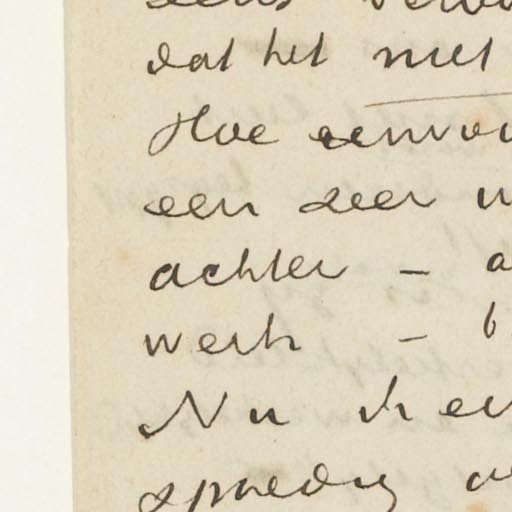 dat het niet
Hoe eenvou
een zeer
achter – a
werk – b
Nu ik een
spoedig